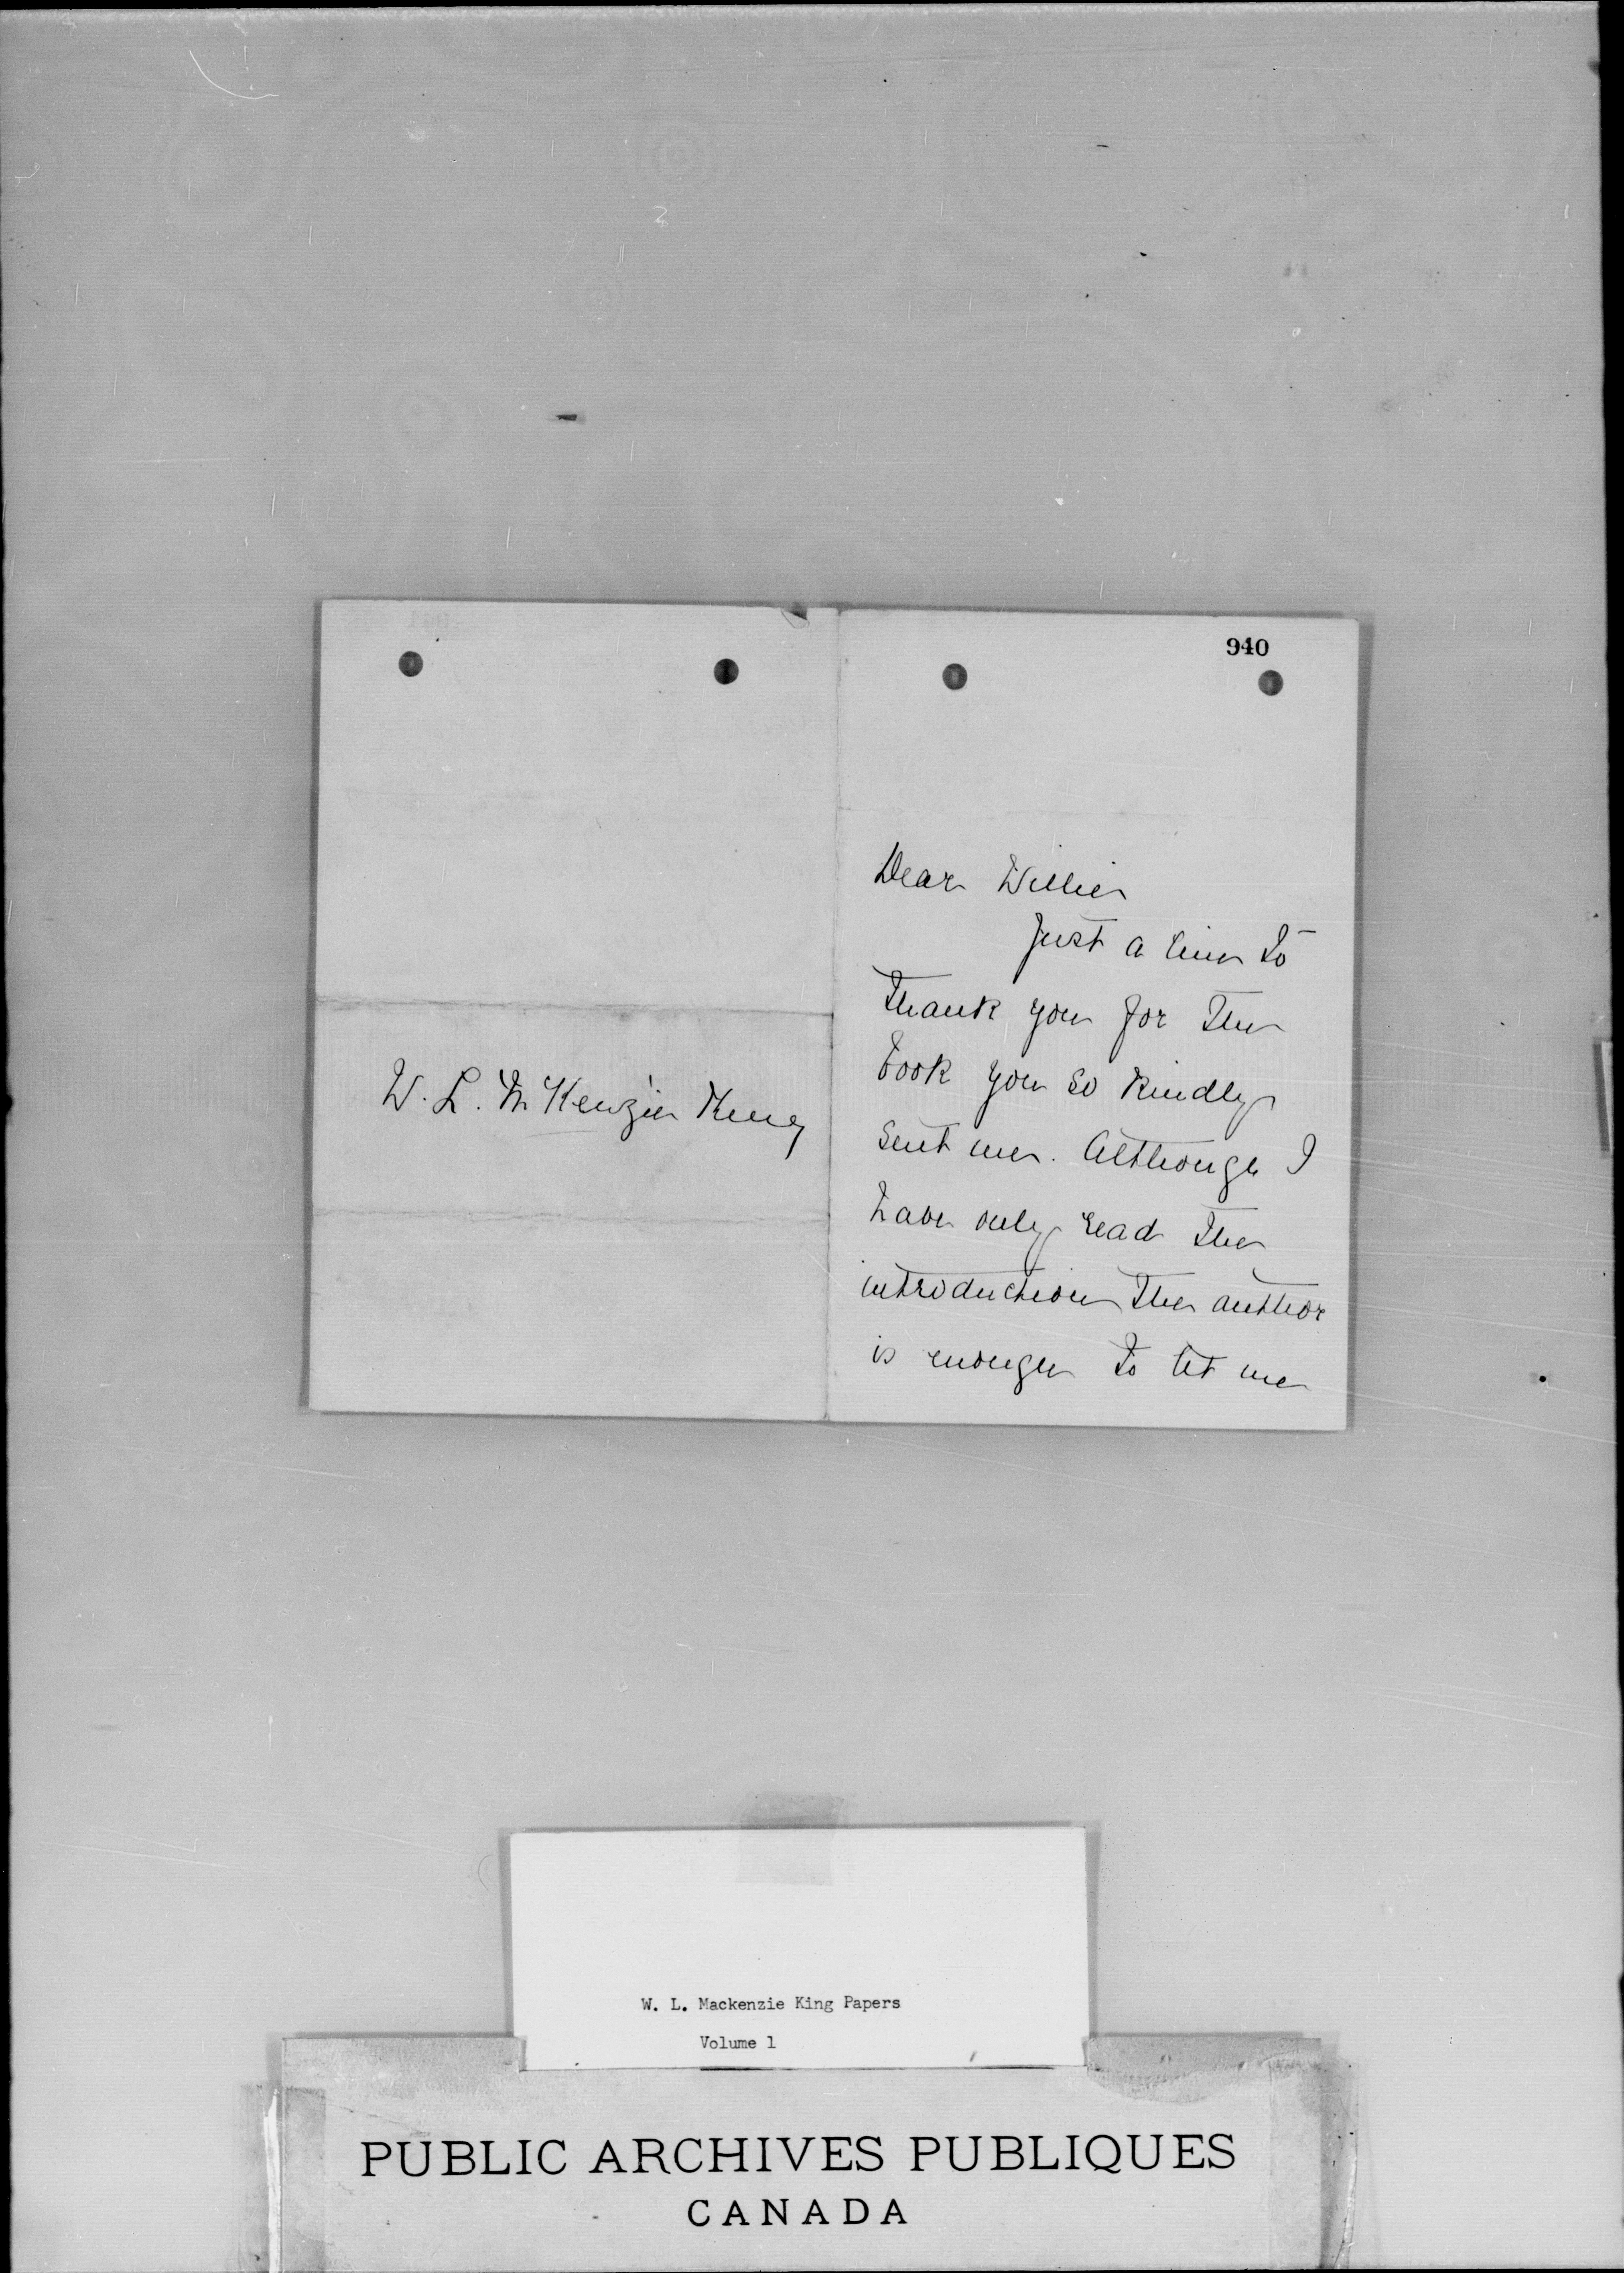 W. L. McKenzie King
940
Dear Willie
Just a line to
thank you for the
book you so kindly
sent me. Although I
have only read the
introduction the author
is enough to let me
W. L. Mackenzie King Papers
Volume 1
PUBLIC ARCHIVES PUBLIQUES
CANADA